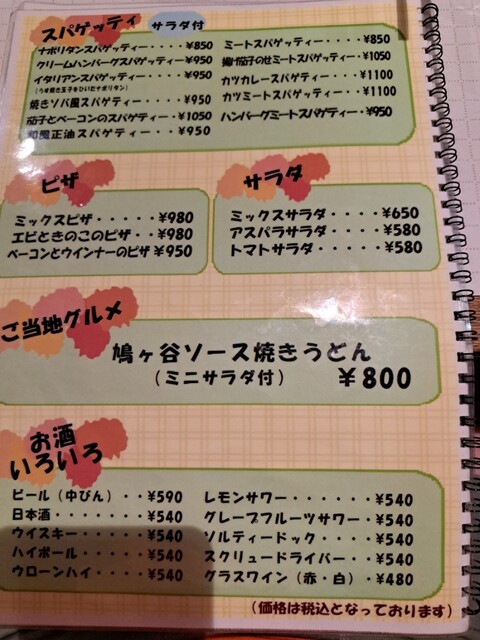 スパゲッティ サラダ付
ナポリタンスパゲッティー・・・・¥850
クリームハンバーグスパゲッティー・¥950
イタリアンスパゲッティー・・・・¥950
(うす焼き玉子をひいたナポリタン)
焼きソバ風スパゲティー・・・¥950
茄子とベーコンのスパゲティー・・¥1050
和風正油スパゲティー・・¥950
ミートスパゲッティー・・・・¥850
揚げ茄子のせミートスパゲティー・¥1050
カツカレースパゲティー・・・¥1100
カツミートスパゲティー・・・¥1100
ハンバーグミートスパゲティー・・¥950
ピザ
ミックスピザ・・・・・¥980
エビときのこのピザ・・¥980
ベーコンとウインナーのピザ ¥950
サラダ
ミックスサラダ・・・・¥650
アスパラサラダ・・・・¥580
トマトサラダ・・・・・¥580
ご当地グルメ
鳩ヶ谷ソース焼きうどん
(ミニサラダ付) ¥800
お酒
いろいろ
ビール(中びん)・・¥590
日本酒・・・・・・・¥540
ウイスキー・・・・・¥540
ハイボール・・・・・¥540
ウローンハイ・・・・¥540
レモンサワー・・・・・・¥540
グレープフルーツサワー・¥540
ソルティードック・・・・¥540
スクリュードライバー・・¥540
グラスワイン(赤・白)・¥480
(価格は税込となっております)